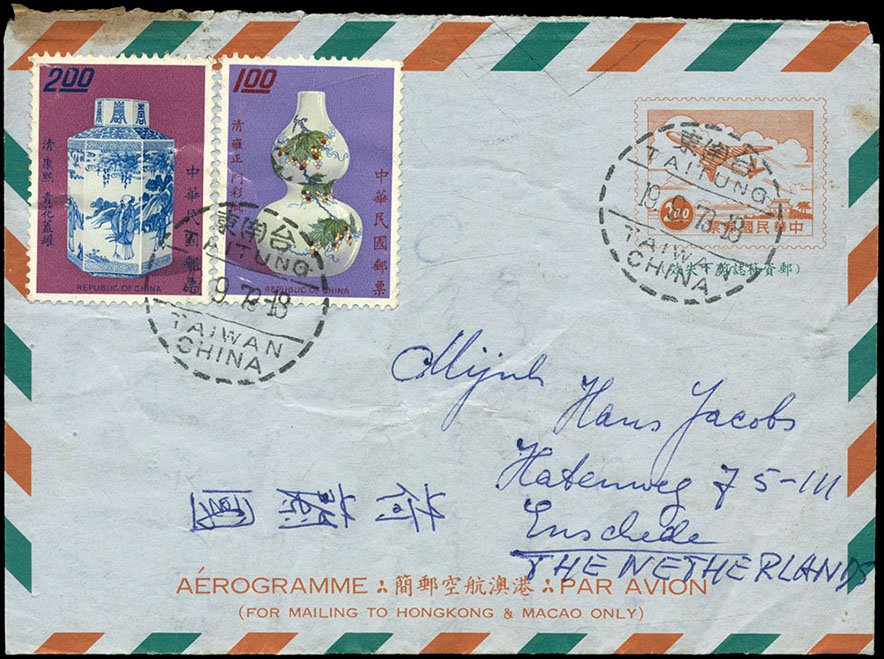 2.00
清 康熙 青花蓋罐
中華民國郵票
REPUBLIC OF CHINA
1.00
清 雍正
中華民國郵票
REPUBLIC OF CHINA
TAITUNG
9 73·18
TAIWAN
CHINA
2.00
中華民國郵票
TAITUNG
19 9 73·18
TAIWAN
CHINA
(郵資符誌剪下失效)
Mijnh
Hans Jacobs
Hatenweg 75-III
Enschede
THE NETHERLANDS
荷蘭國
AÉROGRAMME ∴ 港澳航空郵簡 ∴ PAR AVION
(FOR MAILING TO HONGKONG & MACAO ONLY)